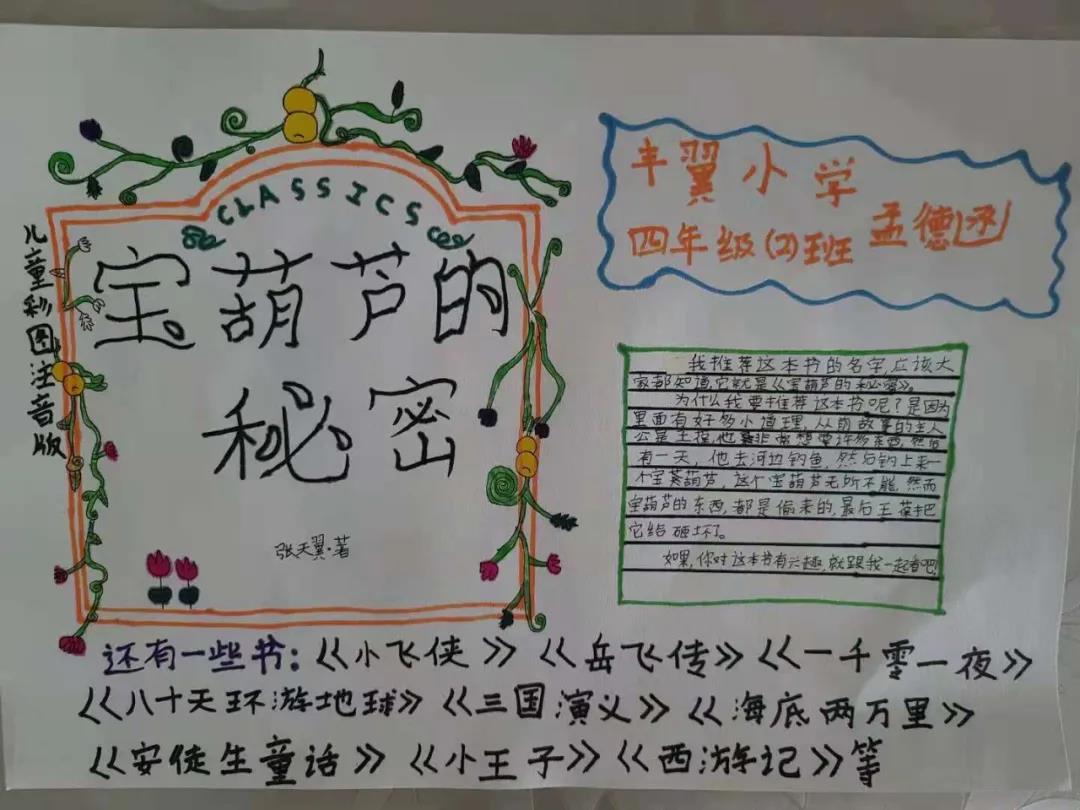 CLASSICS
宝葫芦的
秘密
张天翼·著
儿童彩图注音版
丰翼小学
四年级(2)班 孟德
我推荐这本书的名字,应该大
家都知道,它就是《宝葫芦的秘密》。
为什么我要推荐这本书呢?是因为
里面有好多小道理,从前故事的主人
公是王葆,他非常想要许多东西,然后
有一天,他去河边钓鱼,然后钓上来一
个宝葫芦,这个宝葫芦无所不能,然而
宝葫芦的东西,都是偷来的,最后王葆把
它给砸坏了。
如果,你对这本书有兴趣,就跟我一起看吧!
还有一些书:《小飞侠》《岳飞传》《一千零一夜》
《八十天环游地球》《三国演义》《海底两万里》
《安徒生童话》《小王子》《西游记》等